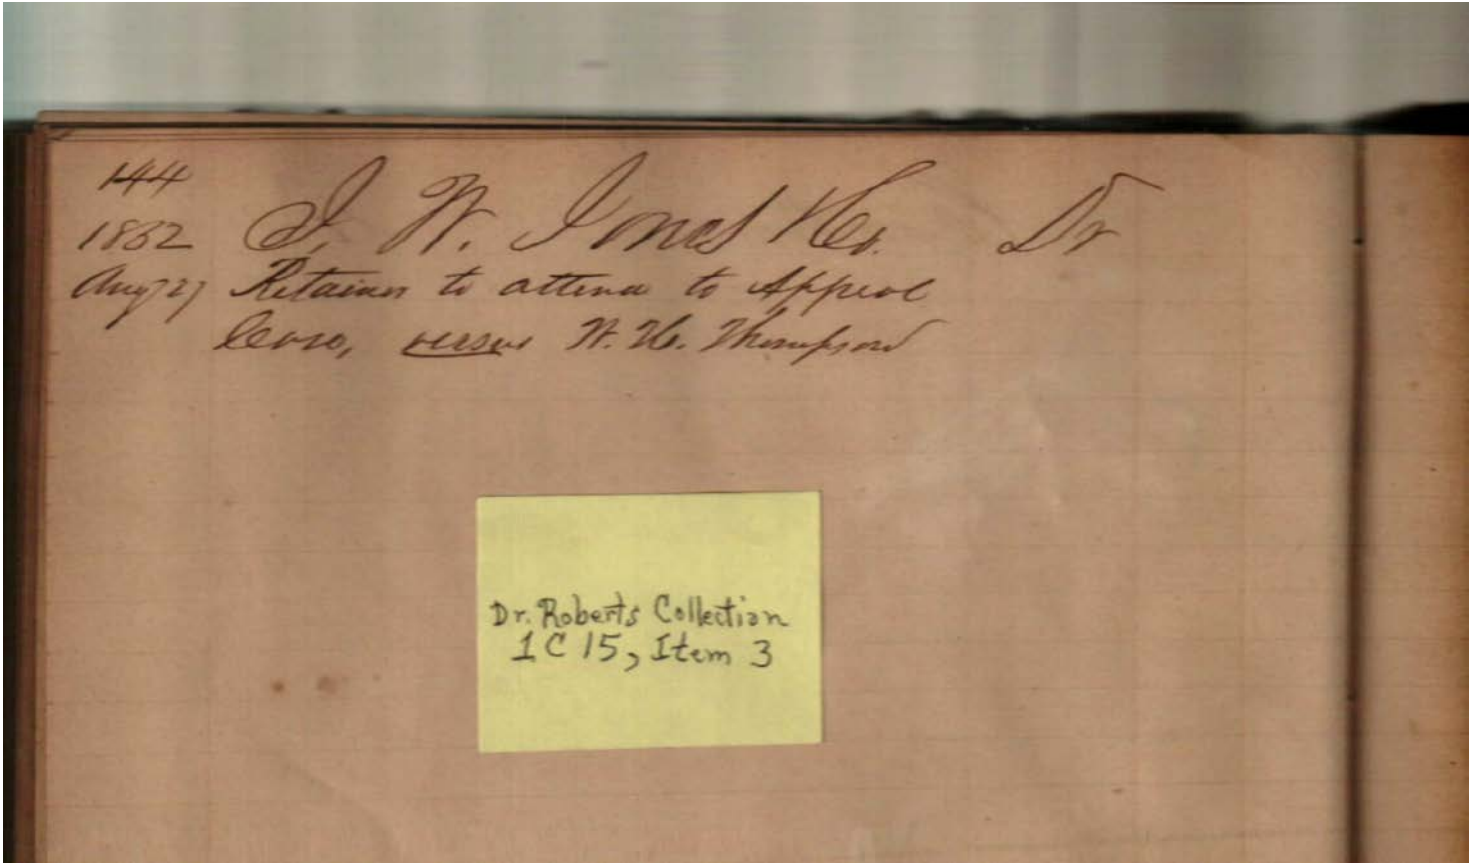 144
1882 J. W. Jones & Co. Dr
Aug 27 Retainer to attend to Appeal
Case, versus W. H. Thompson
Dr. Roberts Collection
1 C 15, Item 3